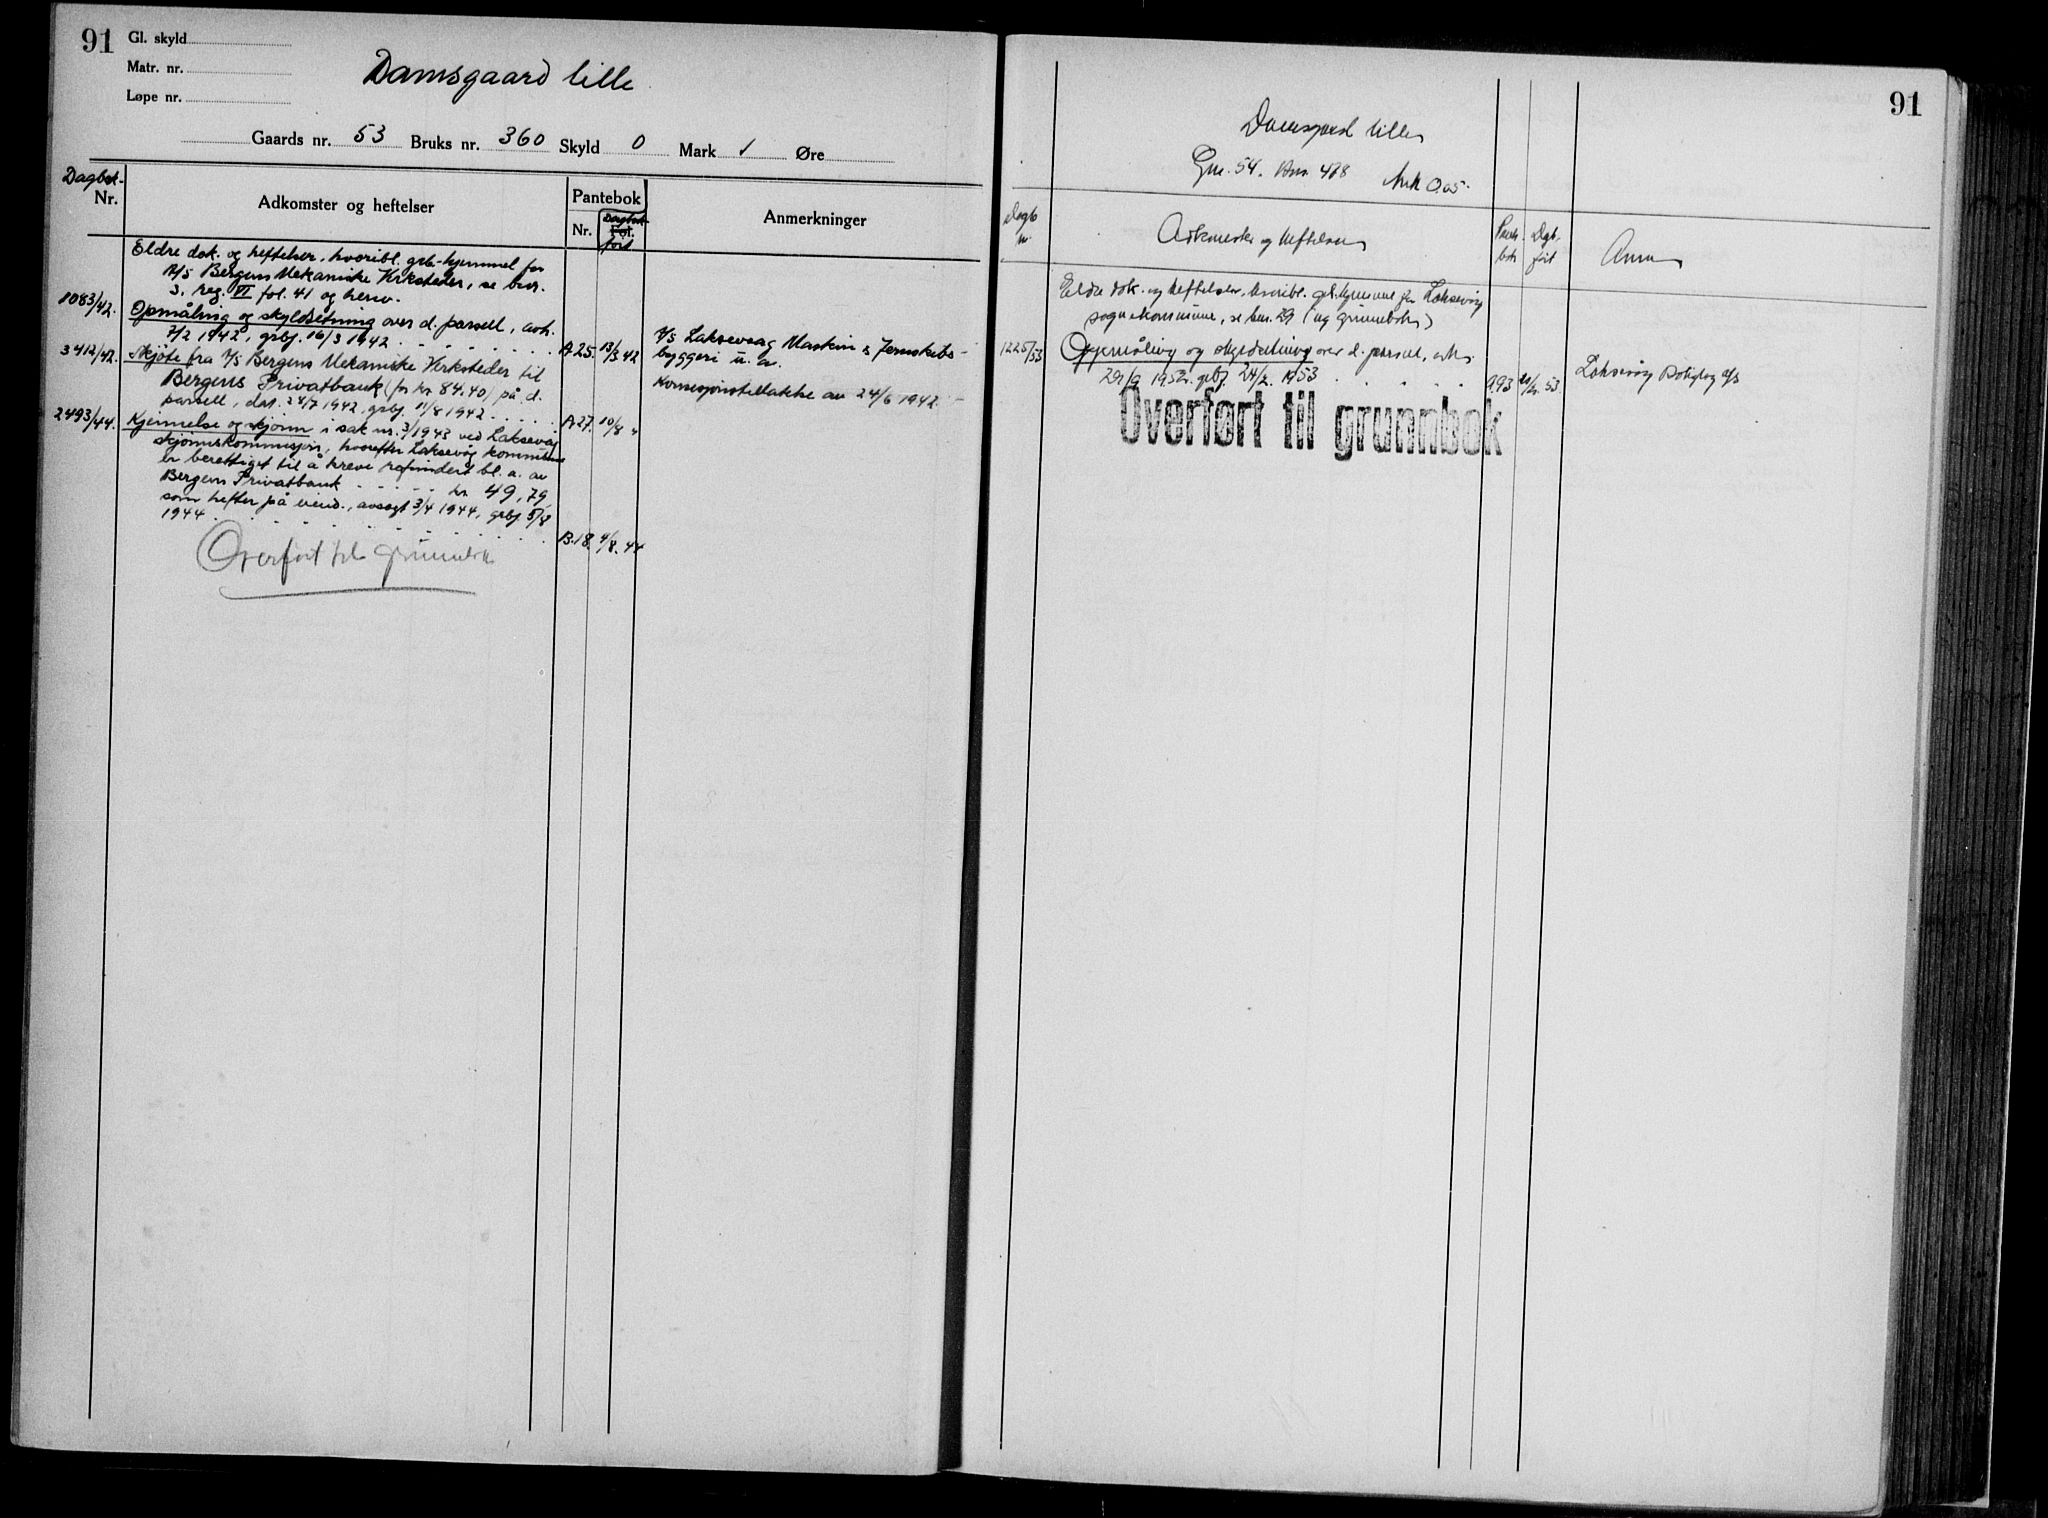 91
Gl. skyld
Matr. nr.
Løpe nr.
Damsgaard lille
Gaards nr. 53 Bruks nr. 360 Skyld 0 Mark 1 Øre
Dagbok-
Nr.
Adkomster og heftelser
Pantebok
Nr.
Fol.
Dagbok-
ført
Anmerkninger
Eldre dok. og heftelser, hvoribl. grb-hjemmel for
A/S Bergens Mekaniske Verksteder, se bnr.
3, reg. VI fol. 41 og henv.
1083/42. Opmåling og skyldsetning over d. parsell, avh.
7/2 1942, grbj. 16/3 1942 A.25. 13/3 42
A/S Laksevaag Maskin & Jernskibs-
byggeri u. a.
3412/42. Skjøte fra A/S Bergens Mekaniske Verksteder til
Bergens Privatbank (for kr 84.40) på d.
parsell, dat. 24/7 1942, grbj. 11/8 1942 A.27. 10/8 "
Konsesjonstillatelse av 24/6 1942.
2493/44. Kjennelse og skjønn i sak nr. 3/1943 ved Laksevåg
skjønnskommisjon, hvorefter Laksevåg kommune
er berettiget til å kreve refundert bl. a. av
Bergens Privatbank kr 49,79
som hefter på eiend., avsagt 3/4 1944, grbj. 5/8
1944 B.18. 4/8. 44
Overført til grunnbok
91
Damsgård lille
Gnr. 54. Bnr. 478 Mrk 0.05.
Dagb
nr.
Adkomster og heftelser
Pante-
bok
Dgb.
ført
Anm
Eldre dok. og heftelser, hvoribl. grb.hjemmel for Laksevåg
sognekommune, se bnr. 29 (ny grunnbok)
1225/53 Oppmåling og skylddeling over d. parsell, avh.
29/9 1952. grbj. 24/2. 1953 A.93 53.
Laksevåg Boliglag A/S
Overført til grunnbok